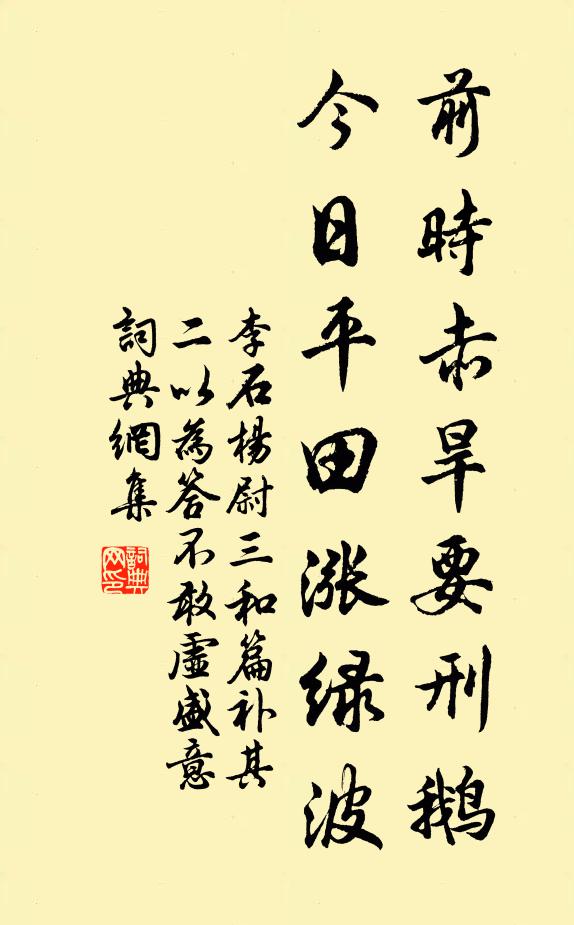 前時赤旱要刑鵝
今日平田漲緑波
李石楊尉三和篇补其
二以為答不敢虛盛意
詞典網集
詞典网印